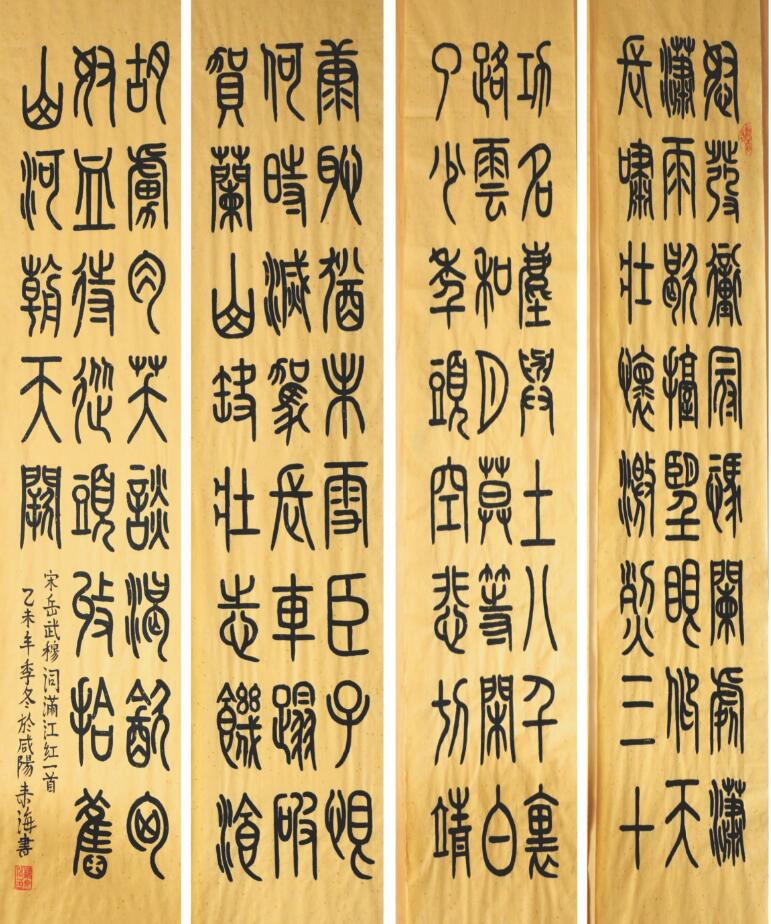 怒髮衝冠憑闌處瀟
瀟雨歇擡望眼仰天
長嘯壯懷激烈三十
功名塵與土八千裏
路雲和月莫等閑白
了少年頭空悲切靖
康恥猶未雪臣子恨
何時滅駕長車蹋破
賀蘭山缺壯志饑湌
胡虜肉笑談渴飲匈
奴血待從頭收拾舊
山河朝天闕
宋岳武穆詞滿江紅一首
乙未年季冬於咸陽來海書